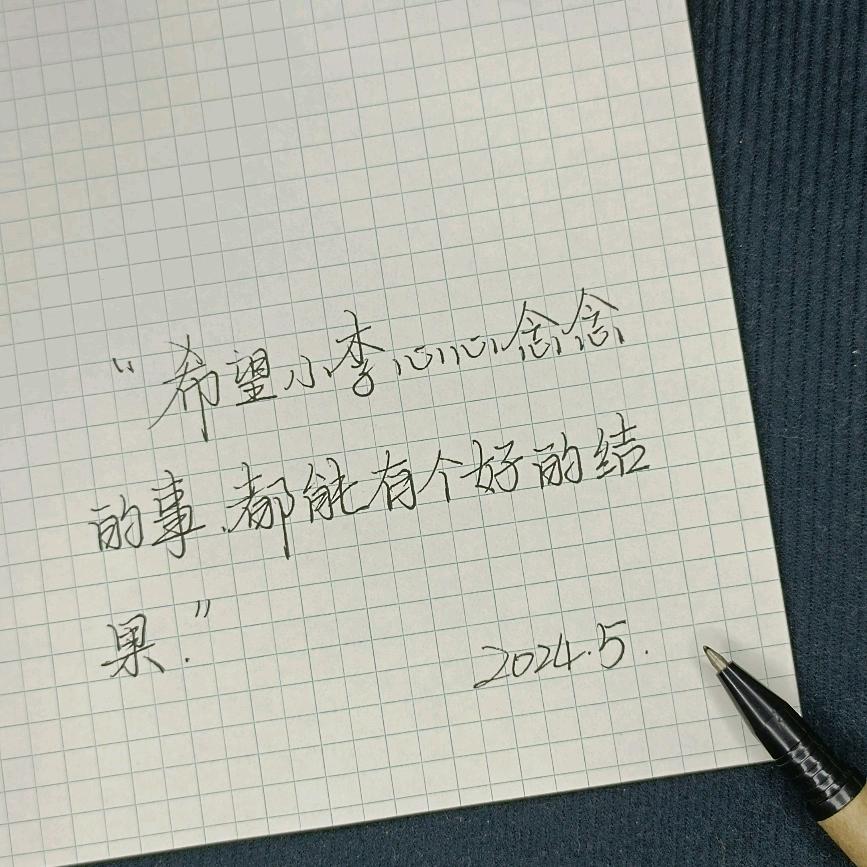 “希望小李心心念念
的事.都能有个好的结
果.”
2024.5.